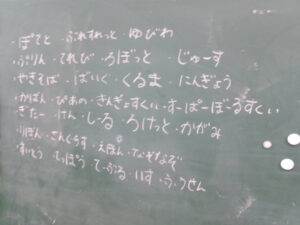 ・ぽてと ・ぶれすれっと ・ゆびわ
・ぷりん ・てれび ・ろぼっと ・じゅーす
・やきそば ・ばいく ・くるま ・にんぎょう
・かばん ・ぴあの ・きんぎょすくい ・すーぱーぼーるすくい
・ぎたー ・けん ・しーる ・ろけっと ・かがみ
・りぼん ・さんぐらす ・えほん ・なぞなぞ
・すいとう ・てっぽう ・てーぶる ・いす ・ふうせん